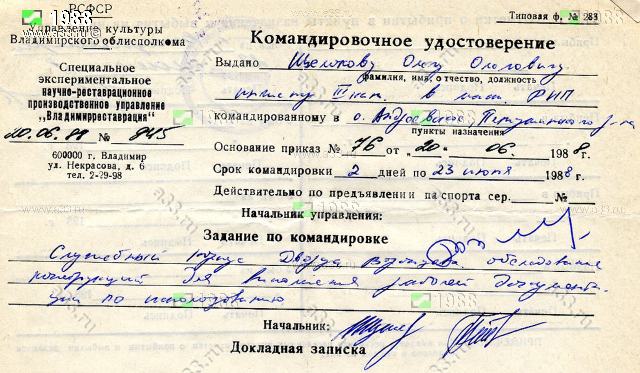 РСФСР
Типовая ф. № 283
Управление культуры
Владимирского облисполкома
Командировочное удостоверение
Специальное
экспериментальное
научно-реставрационное
производственное управление
„Владимирреставрация"
Выдано Щелокову Олегу Олеговичу
фамилия, имя, отчество, должность
командированному в с. Андреевское Петушинского р-на
пункты назначения
20.06.88 № 845
Основание приказ № 76 от „20" 06. 1988 г.
600000 г. Владимир
ул. Некрасова, д. 6
тел. 2-29-98
Срок командировки 2 дней по 23 июня 1988 г.
Действительно по предъявлении паспорта сер. №
Начальник управления:
Задание по командировке
Служебный корпус Дворца Воронцова. обследование
конструкций для выполнения рабочей документа-
ции по использованию
Начальник:
Докладная записка
1988
www.a33.ru